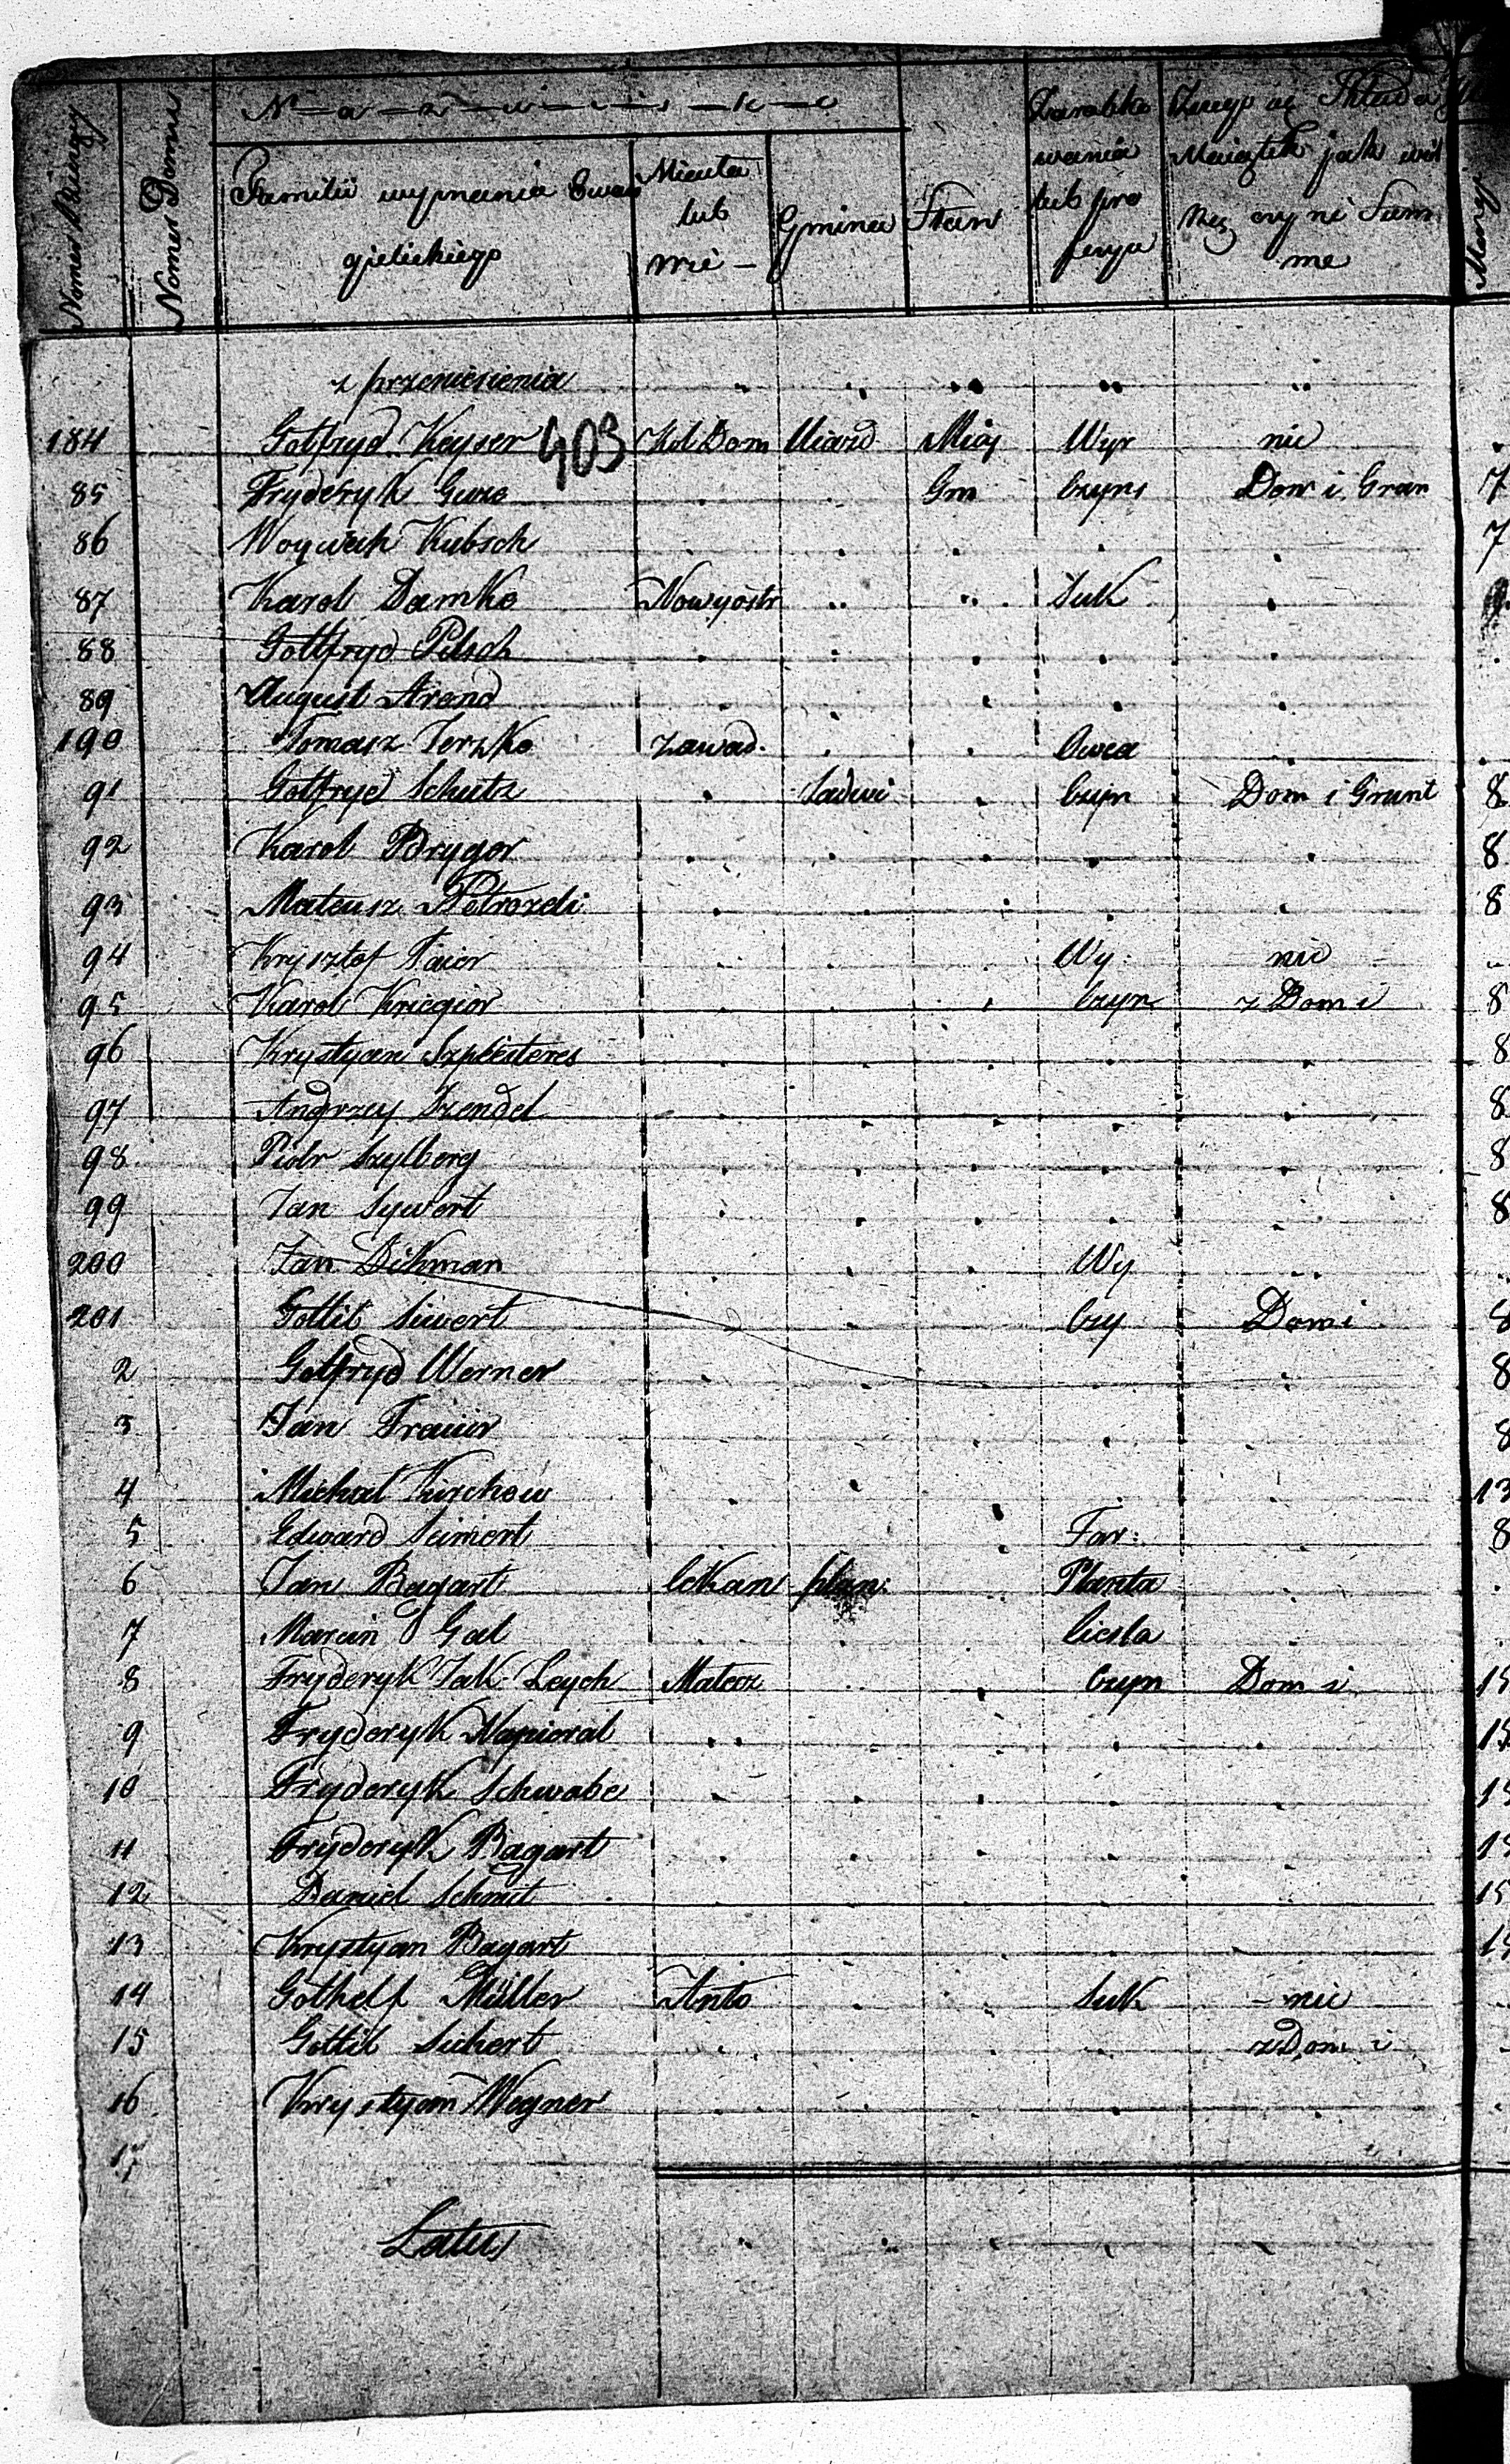 Numer Bieżący
Numer Domu
N-a-z-w-i-s-k-o
Familii wyznania Ewan
gielickiego
Miasta
lub
wsi -
Gmina
Stan
Zarobko
wania
lub pro
fesya
Z czego się Składa
Maiątek jak wiel
me
z przeniesienia
184 Gotfryd Keyser 403 Kol Dom Uiazd Miey Wyr nic
85 Fryderyk Guze Gm Czyns Dom i Grun 7
86 Woyciech Kubsch 7
87 Karol Damke Nowyostr Suk
88 Gottfryd Pilsch
89 August Arend
190 Tomasz Jerzke Zawad. Owca
91 Gotfryd Schutz Czyn Dom i Grunt 8
92 Karol Bryger 8
93 Mateusz Petrozeli 8
94 Krysztof Faier Wy: nic
95 Karol Kriegier Czyn z Dom i 8
96 Krystyan Szpliesteres 8
97 Andrzey Szendel 8
98 Piotr Szylberg 8
99 Jan Sywert 8
200 Jan Dikman Wy
201 Gottlib Siwert Czy Dom i 8
2 Gotfryd Werner 8
3 Jan Fraiier 8
4 Michał Kirchow 13
5 Edward Seimert Far: 8
6 Jan Bagart plan: Planta
7 Marcin Gal Ciesla
8 Fryderyk Jak Leych Mateoz Czyn Dom i 15
9 Fryderyk Napieral 15
10 Fryderyk Schwabe 15
11 Fryderyk Bagart 15
12 Daniel Schmit 15
13 Krystyan Bagart 15
14 Gothelf Müller Anto Suk - nic
15 Gottlib Sichert z Dom i
16 Krystyan Wegner
17
Latus